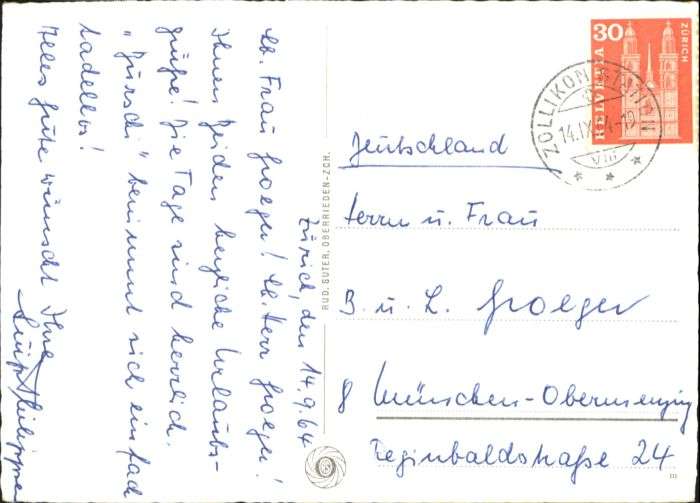 Zürich, den 14.9.64
Lb. Frau Groeger! Lb. Herr Groeger!
Ihnen Beiden herzliche Urlaubs-
grüße! Die Tage sind herrlich.
"Burschi" benimmt sich einfach
tadellos!
Alles Gute wünscht Ihre
Philippine
RUD. SUTER, OBERRIEDEN-ZCH.
30
HELVETIA
ZÜRICH
ZOLLIKON STATION
14.IX.64-19
VIII
Deutschland
Herrn u. Frau
B. u. L. Groeger
8 München-Obermenzing
Reginbaldstraße 24